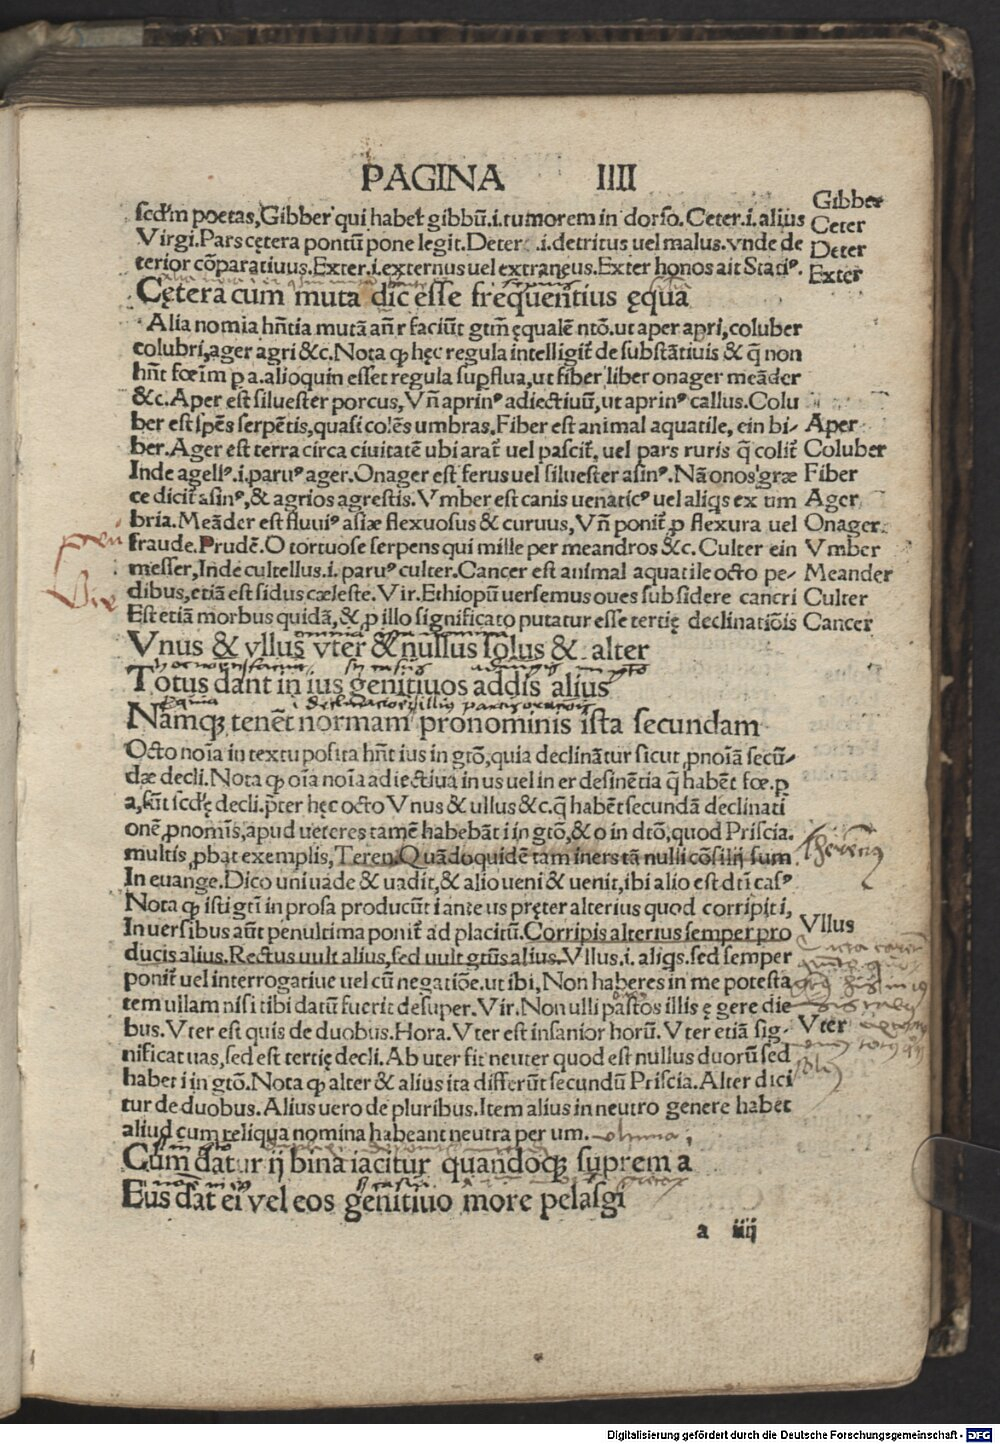 PAGINA IIII
scd'm poetas, Gibber qui habet gibbū.i.tumorem in dorso. Ceter.i.alius
Virgi.Pars cętera pontū pone legit.Deter .i.detritus uel malus.vnde de
terior cōparatiuus.Exter.i.externus uel extraneus.Exter honos ait Stati⁹.
Gibber
Ceter
Deter
Exter
Cętera cum muta dic esse frequentius ęqua
Alia nomia hn̄tia mutā an̄ r faciūt gtm̄ ęqualē ntō.ut aper apri,coluber
colubri,ager agri &c.Nota ꝙ hęc regula intelligit̄ de substātiuis & q̄ non
hn̄t fœim̄ p a.alioquin esset regula supflua,ut fiber liber onager meāder
&c.Aper est siluester porcus,Vn̄ aprin⁹ adiectiuū,ut aprin⁹ callus.Colu
ber est spēs serpētis,quasi colēs umbras.Fiber est animal aquatile, ein bi-
ber.Ager est terra circa ciuitatē ubi arat̄ uel pascit̄, uel pars ruris q̄ colit̄
Inde agell⁹.i.paru⁹ ager.Onager est ferus uel siluester asin⁹.Nā onos græ
ce dicit̄ asin⁹,& agrios agrestis.Vmber est canis uenatic⁹ uel aliqs ex um
bria.Meāder est fluui⁹ asiæ flexuosus & curuus,Vn̄ ponit̄ ꝓ flexura uel
fraude.Prudē.O tortuose serpens qui mille per meandros &c.Culter ein
messer,Inde cultellus.i.paru⁹ culter.Cancer est animal aquatile octo pe-
dibus,etiā est sidus cæleste.Vir.Ethiopū uersemus oues sub sidere cancri
Est etiā morbus quidā,& ꝓ illo significato putatur esse tertię declinatiōis
Aper
Coluber
Fiber
Ager
Onager
Vmber
Meander
Culter
Cancer
Vnus & vllus vter & nullus solus & alter
Totus dant in ius genitiuos addis alius
Namqꝫ tenēt normam pronominis ista secundam
Octo noīa in textu posita hn̄t ius in gtō,quia declinātur sicut ꝓnoīā secū-
dæ decli.Nota ꝙ oīa noīa adiectiua in us uel in er desinētia q̄ habēt fœ.p
a,sūt scd'ę decli.pter hęc octo Vnus & ullus &c.q̄ habēt secundā declinati
onē ꝓnomīs,apud ueteres tamē habebāt i in gtō,& o in dtō,quod Priscia.
multis ꝓbat exemplis,Teren.Quādoquidē tam iners tā nulli cōsilij sum
In euange.Dico uni uade & uadit,& alio ueni & uenit,ibi alio est dti cas⁹
Nota ꝙ isti gtī in prosa producūt i ante us pręter alterius quod corripit i,
In uersibus aūt penultima ponit̄ ad placitū.Corripis alterius semper pro
ducis alius.Rectus uult alius,sed uult gtūs alius.Vllus.i.aliqs.sed semper
ponit̄ uel interrogatiue uel cū negatiōe.ut ibi,Non haberes in me potesta
tem ullam nisi tibi datū fuerit desuper.Vir.Non ulli pastos illis ę gere die
bus.Vter est quis de duobus.Hora.Vter est insanior horū.Vter etiā sig-
nificat uas,sed est tertię decli.Ab uter fit neuter quod est nullus duorū sed
habet i in gtō.Nota ꝙ alter & alius ita differūt secundū Priscia.Alter dici
tur de duobus.Alius uero de pluribus.Item alius in neutro genere habet
aliud cum reliqua nomina habeant neutra per um.
Vllus
Vter
Cum datur ij bina iacitur quandoqꝫ suprema
Eus dat ei vel eos genitiuo more pelasgi
a iiij
Digitalisierung gefördert durch die Deutsche Forschungsgemeinschaft - DFG